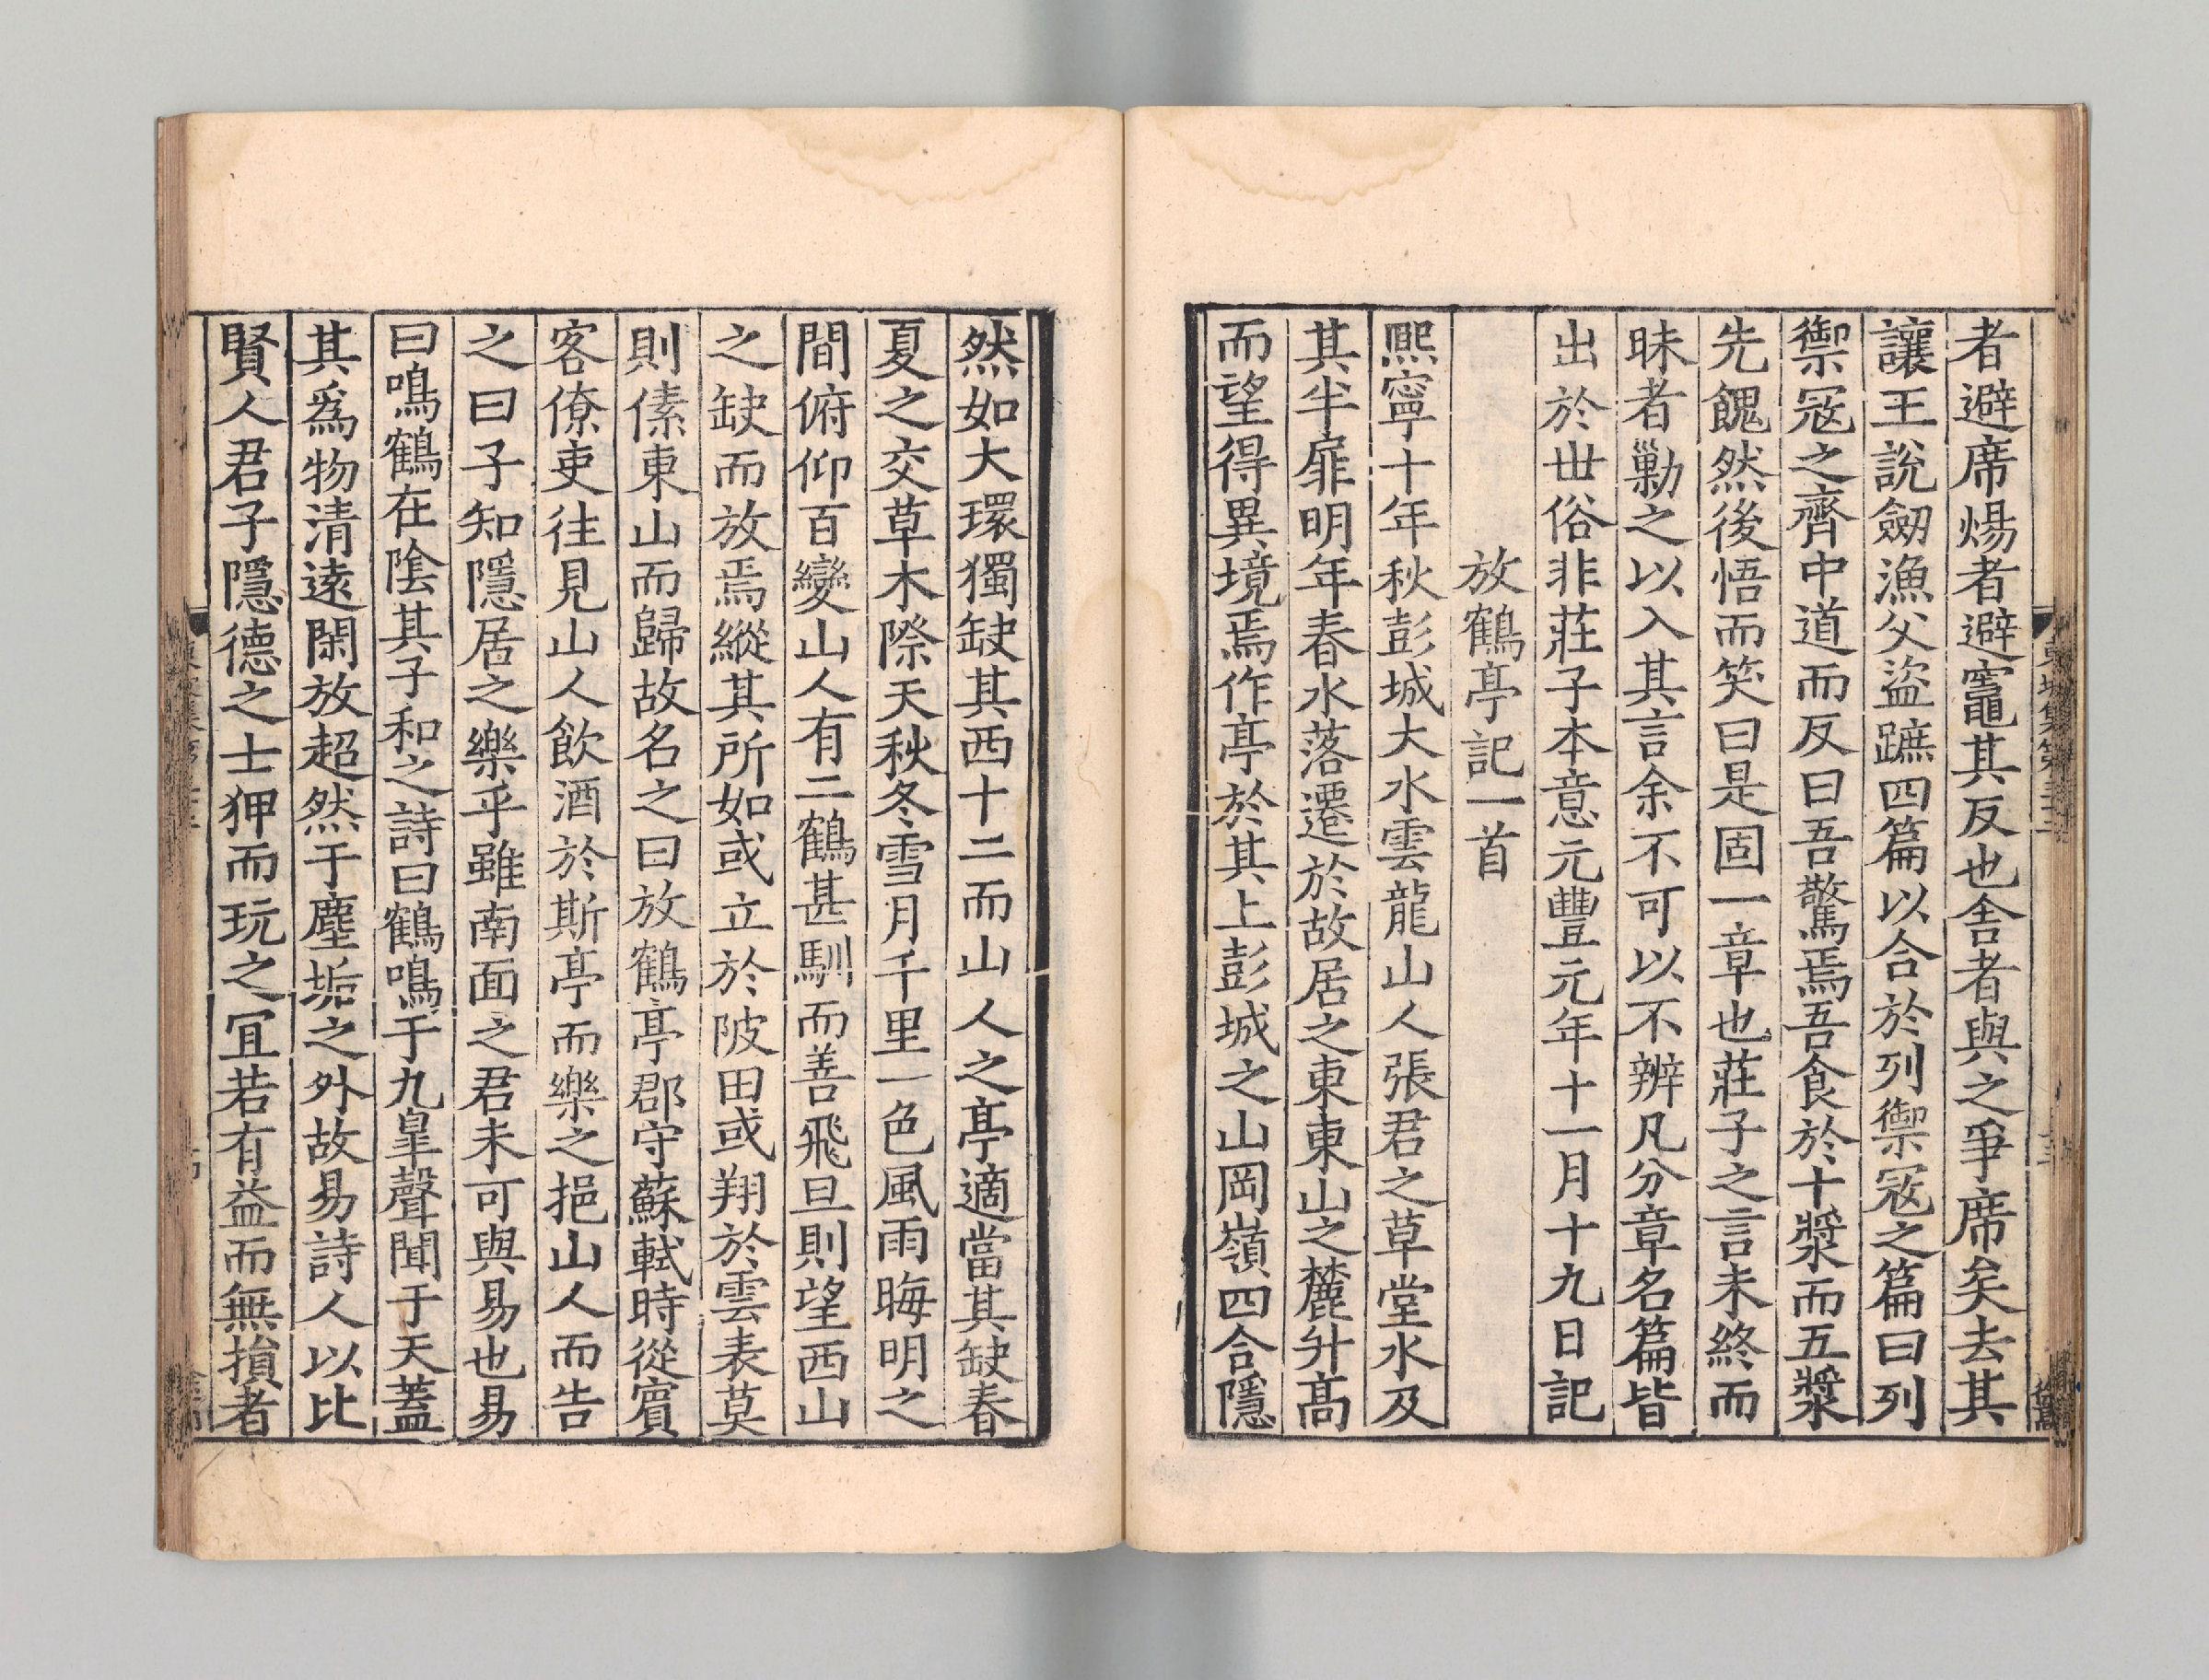 者避席煬者避竈其反也舍者與之爭席矣去其
讓王說劒漁父盜蹠四篇以合於列禦寇之篇曰列
禦寇之齊中道而反曰吾驚焉吾食於十漿而五漿
先餽然後悟而笑曰是固一章也莊子之言未終而
昧者勦之以入其言余不可以不辨凡分章名篇皆
出於世俗非莊子本意元豐元年十一月十九日記
放鶴亭記一首
熈寧十年秋彭城大水雲龍山人張君之草堂水及
其半扉明年春水落遷於故居之東東山之麓升髙
而望得異境焉作亭於其上彭城之山岡嶺四合隱
然如大環獨缺其西十二而山人之亭適當其缺春
夏之交草木際天秋冬雪月千里一色風雨晦明之
間俯仰百變山人有二鶴甚馴而善飛旦則望西山
之缺而放焉縱其所如或立於陂田或翔於雲表莫
則傃東山而歸故名之曰放鶴亭郡守蘇軾時從賓
客僚吏往見山人飲酒於斯亭而樂之挹山人而告
之曰子知隱居之樂乎雖南面之君未可與易也易
曰鳴鶴在陰其子和之詩曰鶴鳴于九皐聲聞于天蓋
其爲物清遠閑放超然于塵垢之外故易詩人以比
賢人君子隱德之士狎而玩之冝若有益而無損者